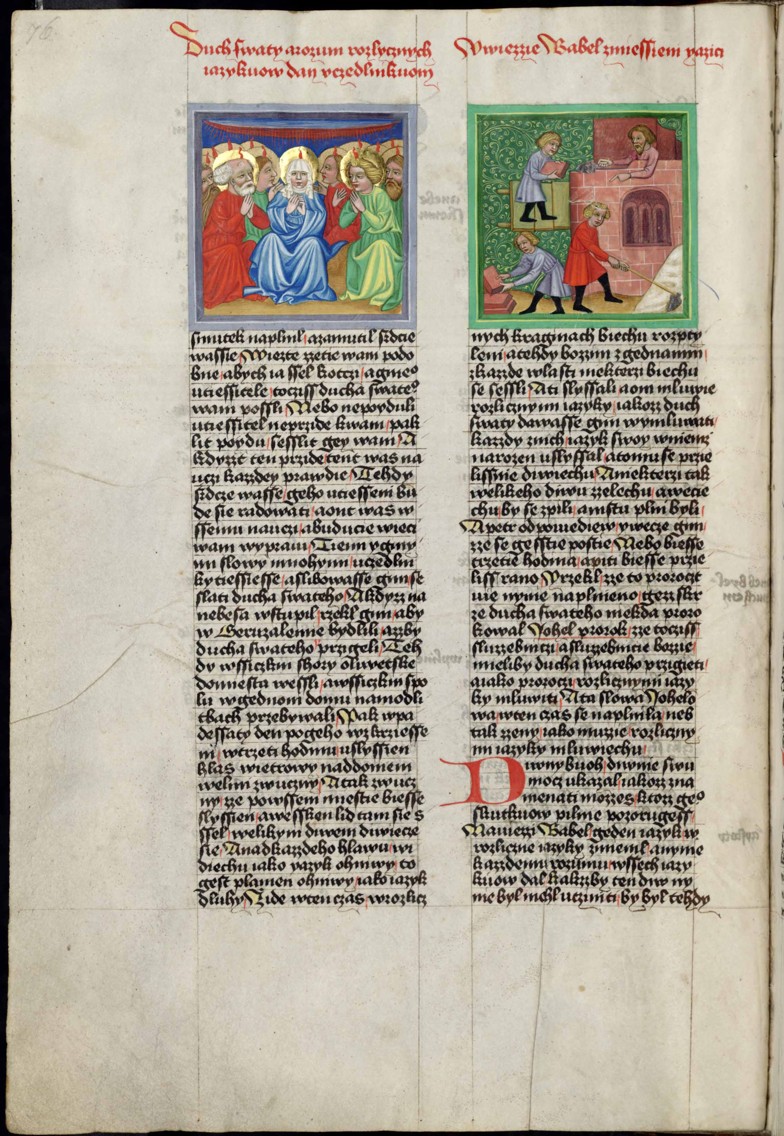 76
Duch swaty a rozum rozlycznych
iazykuow dan vczedlnikuom
smutek naplnil / a zamutil srdcie
wassie / Wierzte rzecie wam podo
bne / abych ia ssel kotczi / a gineo
utiessitele / tociss ducha swateo
wam possli / Nebo nepoyduli
utiessitel neprzide kwam / pak
lit poydu / sesslit gey wam / A
kdyzzt ten przide tent was na
uczi kazdey prawdie / Tehdy
srdcze wasse / geho utiessenim bu
de sie radowati / a ont was w
ssemu nauczi / a buducie wieci
wam wyprawi / Tiemi y giny
mi slowy mnohymi / uczedlni
ky tiessiesse / a slibowasse gim / se
slati ducha swateho / A kdyzz na
nebesa wstupil / rzekl gim / aby
w Geruzalemie bydlili / azzby
ducha swateho przigeli / Teh
dy wssiczkni s hory oliwetske
do miesta wessli / a wssiczkni spo
lu w gednom domu na modli
tbach przebywali / Pak w pa
dessaty den po geho wzkrziesse
ni / w trzeti hodinu / uslyssien
hlas wietrowy nad domem
welmi zwuczny / A tak zwucz
ny / zze po wssem miestie biesse
slyssien / a wessken lid tam sie s
ssel / welikym diwem diwiecze
sie / A nad kazzdeho hlawu / wi
diechu iako yazyk ohniwy / to
gest plamen ohniwy / iako iazyk
dluhy / Zide w ten czas / w rozlicz
W wiezzie Babel zmiessieni yazici
nych kraginach biechu rozpty
leni / a tehdy bozzim zgednanim /
z kazzde wlasti niekterzi biechu
se sessli / A ti slyssali a oni mluwie
rozlicznymi iazyky / iakozz duch
swaty dawasse gim wymluwati /
kazzdy znich / iazyk swoy w niemz
narozen uslyssal / a tomu se przie
lissnie diwiechu / A niekterzi tak
welikeho diwu zzelechu / a wecie
chu by se zpili / a mstu plni byli /
A petr odpowiediew / y wecze gim /
zze se gesstie postie / Nebo biesse
trzetie hodina / a piti biesse przie
liss rano / Wrzekl / zze to proroczt
wie nynie naplnieno / gezz skr
ze ducha swateho niekda proro
kowal Johel prorok / zze tociss
sluzzebnici / a sluzzebnicie bozie /
mieliby ducha swateho przigieti /
a iako proroci rozlicznymi iazy
ky mluwiti / A ta slowa Johelo
wa / w ten czas se naplnila / neb
tak zzeny / iako muzzie rozliczny
mi iazyky mluwiechu /
Diwny buoh diwnie swu
mocz ukazal / iakozz zna
menati mozzes / ktozz geo
skutkuow pilnie pozorugess /
Na wiezzi Babel geden iazyk w
rozlicznie iazyky zmienil / a nynie
kazzdemu rozumu / wssech iazy
kuow dal / kakzzby ten diw ny
nie byl mohl uczinti / by byl tehdy